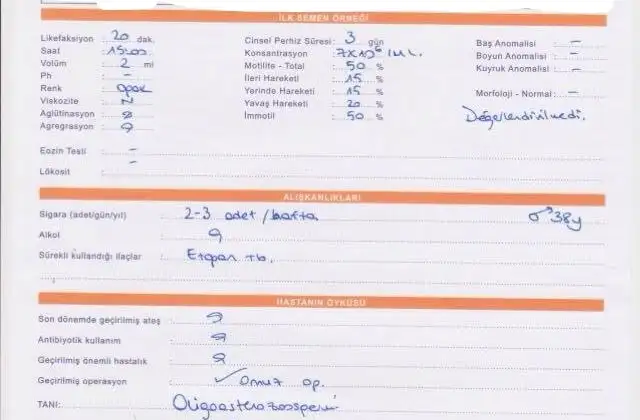 İLK SEMEN ÖRNEĞİ
Likefaksiyon : 20 dak.
Saat : 15:00
Volüm : 2 ml
Ph : -
Renk : opak
Viskozite : N
Aglütinasyon :
Agregrasyon :
Eozin Testi : -
Lökosit : -
Cinsel Perhiz Süresi : 3 gün
Konsantrasyon : 7x10⁶/ML.
Motilite - Total : 50 %
İleri Hareketi : 15 %
Yerinde Hareketi : 15 %
Yavaş Hareketi : 20 %
İmmotil : 50 %
Baş Anomalisi : -
Boyun Anomalisi : -
Kuyruk Anomalisi : -
Morfoloji - Normal : -
Değerlendirilmedi.
ALIŞKANLIKLARI
Sigara (adet/gün/yıl) : 2-3 adet/hafta
♂ 38y
Alkol :
Sürekli kullandığı ilaçlar : Etopan tb.
HASTANIN ÖYKÜSÜ
Son dönemde geçirilmiş ateş :
Antibiyotik kullanım :
Geçirilmiş önemli hastalık :
Geçirilmiş operasyon : ✓ Omuz op.
TANI: Oligoasteno zoospermi